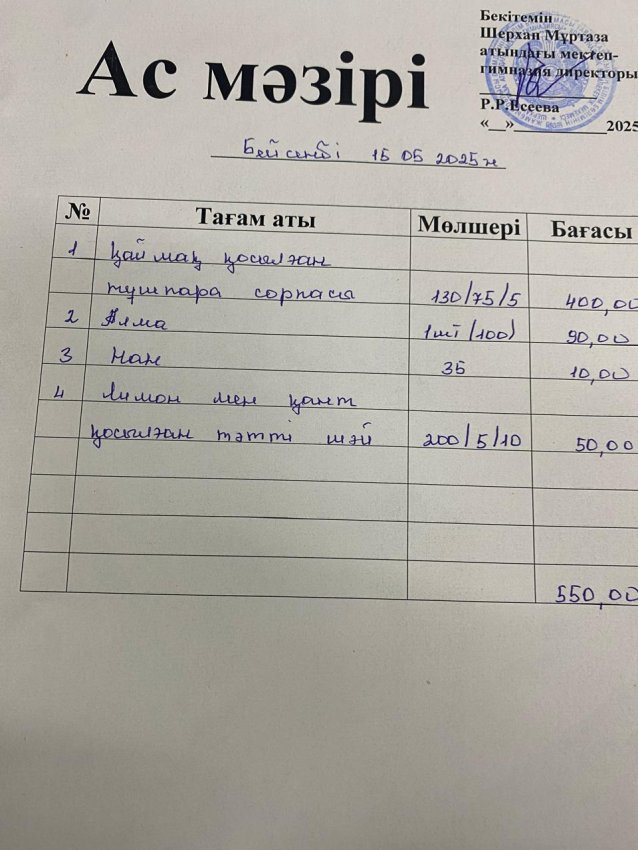 Бекітемін
Шерхан Мұртаза
атындағы мектеп-
гимназия директоры
Р.Р.Есеева
«__»____________2025
Ас мәзірі
Бейсенбі 15 05 2025ж
№ Тағам аты Мөлшері Бағасы
1 Қаймақ қосылған
тұшпара сорпасы 130/75/5 400,00
2 Алма 1шт (100) 90,00
3 Нан 35 10,00
4 Лимон мен қант
қосылған тәтті шәй 200/5/10 50,00
550,00